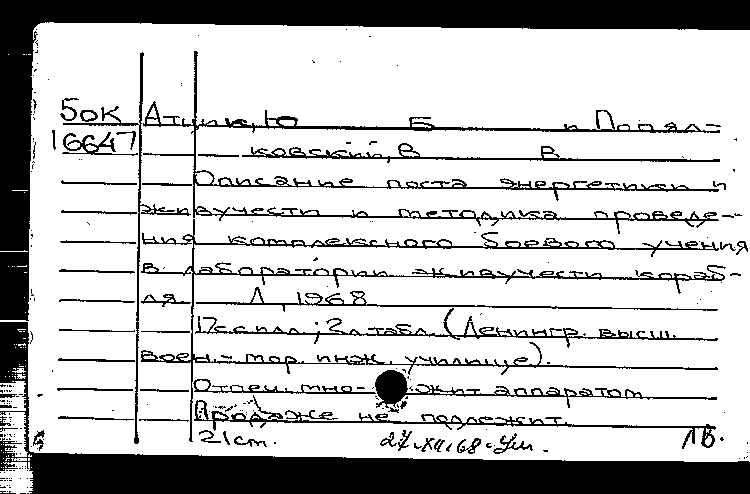 БоК Атцик, Ю Б и Попял=
16647
ковский, В В
Описание поста энергетики и
живучести и методика проведе-
ния комплексного боевого учения
в лаборатории живучести кораб-
ля Л, 1968
17с с илл; 2л табл. (Ленингр. высш.
воен.= мор. инж. училище).
Отпеч. мно- жит аппаратом
Продаже не подлежит.
21 cm. 27.XII.68. 1В.